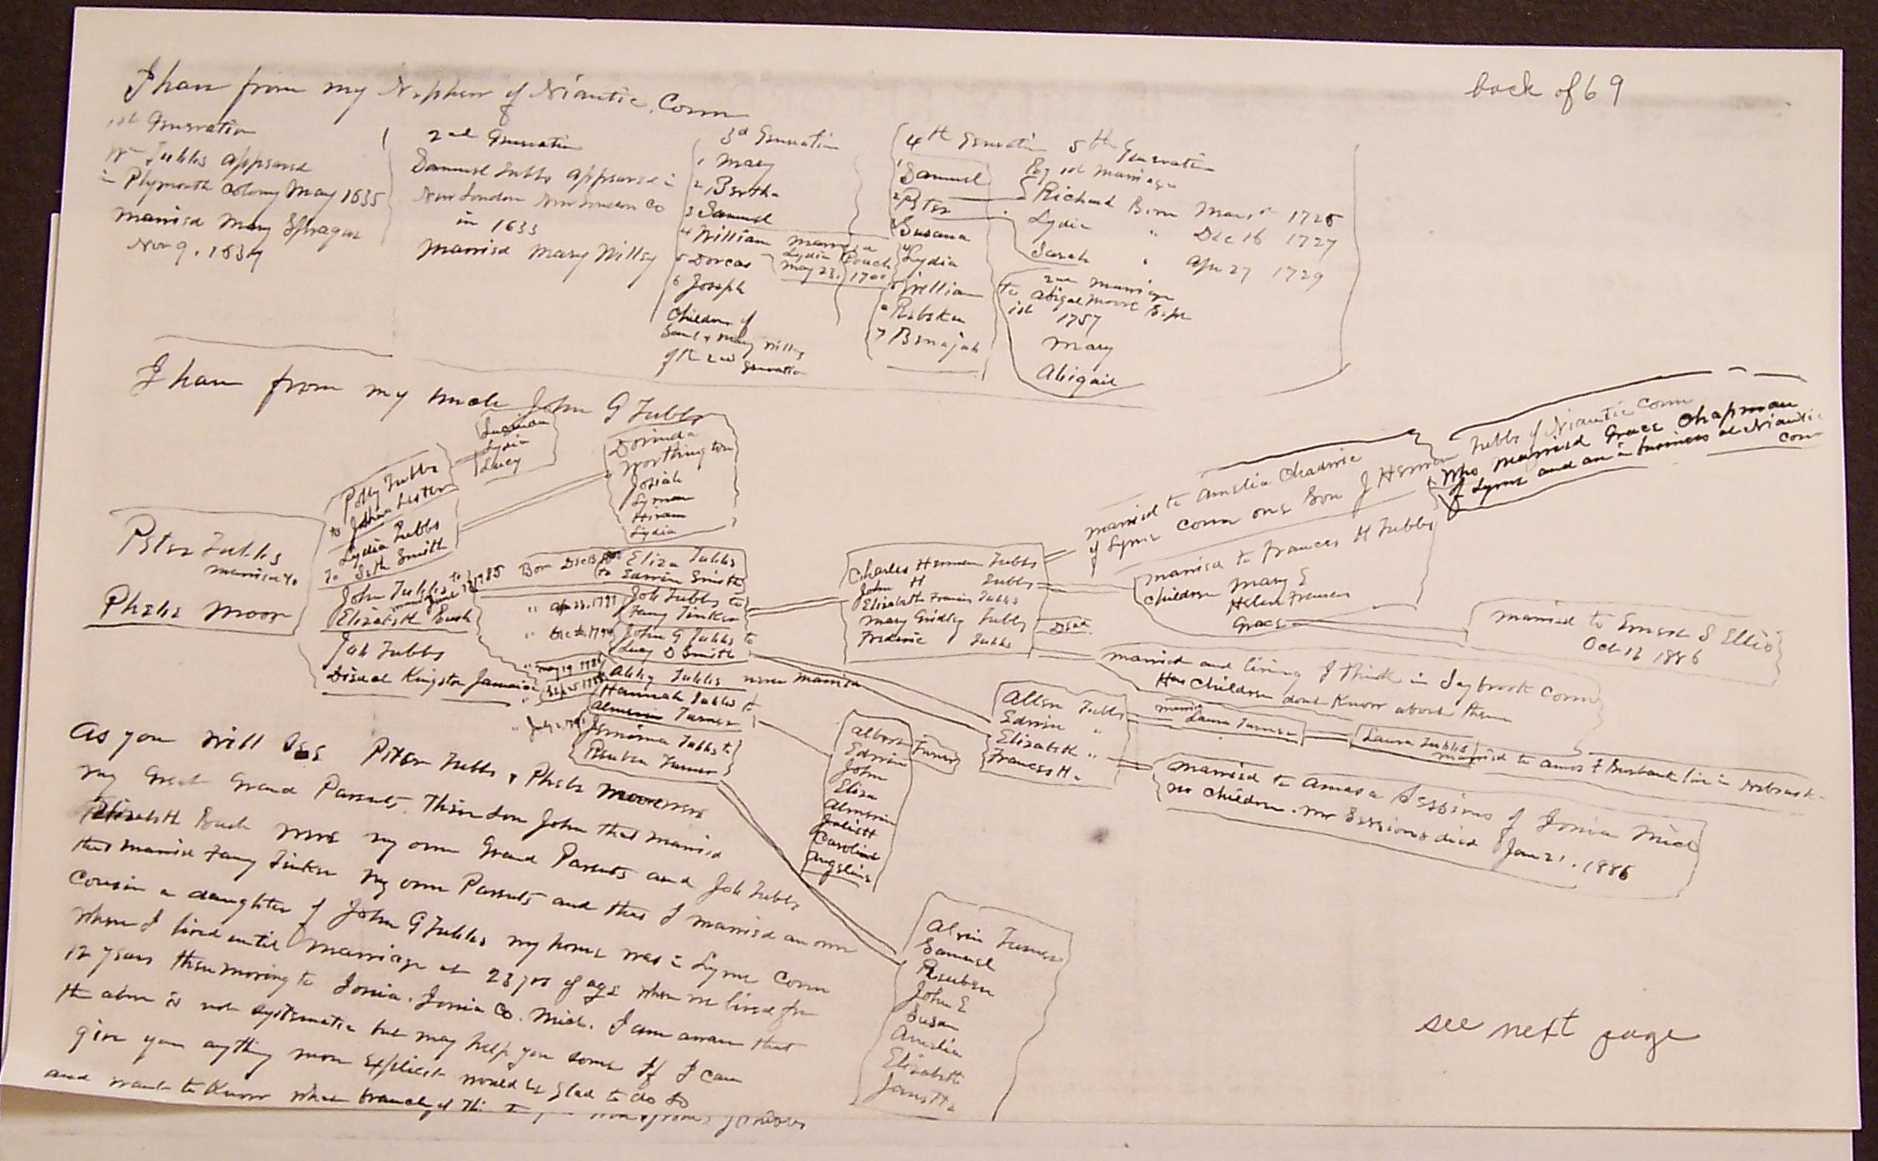 back of 69
I have from my Nephew of Niantic, Conn
1st Generation
Wm Tubbs appeared
in Plymouth Colony May 1635
married Mary Sprague
Nov 9, 1637
2nd Generation
Samuel Tubbs appeared in
New London New London Co
in 1633
married Mary Willey
3d Generation
1 Mary
2 Bertha
3 Samuel
4 William married
Lydia Rouch
May 23, 1700
5 Dorcas
6 Joseph
Children of
Saml & Mary Willey
of the 2nd Generation
4th Generati
1 Samuel
2 Peter
3 Susana
4 Lydia
5 William
6 Rebeka
7 Benajah
5th Generation
By 1st Marriage
Richard Born Mar 1st 1725
Lydia " Dec 16 1727
Sarah " Apr 27 1729
2nd marriage
to Abigal Moore Sept
1st 1757
Mary
Abigail
I have from my uncle John G Tubbs
Peter Tubbs
married to
Phebe Moor
Polly Tubbs
to Lester
Lydia
Lucy
Lydia Tubbs
To Seth Smith
Dorinda
Worthington
Josiah
Lyman
Hiram
Lydia
John Tubbs to
Elizabeth Rouch
Job Tubbs
Diseased Kingston Jamaica
Born Dec
Eliza Tubbs
to Edwin Smith
" Apr 23, 1791
Job Tubbs to
Fany Tinker
John G Tubbs to
Lucy D Smith
Abby Tubbs never married
Hannah Tubbs to
Almerin Turner
Jemima Tubbs to
Reuben Turner
Charles Herman Tubbs
John H Tubbs
Elizabeth Francis Tubbs
Mary Gridley Tubbs Dead
Frederic Tubbs
married to Amelia Chadwic
of Lyme Conn one Son J Herman Tubbs of Niantic Conn
Who married Grace Chapman
of Lyme and are in business at Niantic
Conn
married to Frances H Tubbs
Children Mary E
Helen Frances
Grace
married to Ernest S Ellis
Oct 13 1886
married and living I think in Saybrook Conn
Has Children dont Know about them
Allen Tubbs
Edwin "
Elizabeth "
Frances H "
married
Laura Turner
Laura Tubbs
married to Amos F Burbank live in Nebraska
married to Amasa Sessions of Ionia Mich
no Children. Mr Sessions died Jan 21. 1886
Albert Turner
Edwin
John
Eliza
Almerin
Juliett
Caroline
Angeline
Alvin Turner
Samuel
Reuben
John E
Susan
Amelia
Elizabeth
Janette
As you will see Peter Tubbs & Phebe Moore were
my Great Grand Parents. Their Son John that married
Elizabeth Rouch were my own Grand Parents and Job Tubbs
that married Fany Tinker my own Parents and that I married an own
Cousin a daughter of John G Tubbs my home was in Lyme Conn
where I lived until marriage at 23 yrs of age when we lived for
12 years then moving to Ionia. Ionia Co. Mich. I am aware that
the above is not systematic but may help you some If I can
give you anything more explicit would be glad to do so
and want to Know what branch of the
see next page